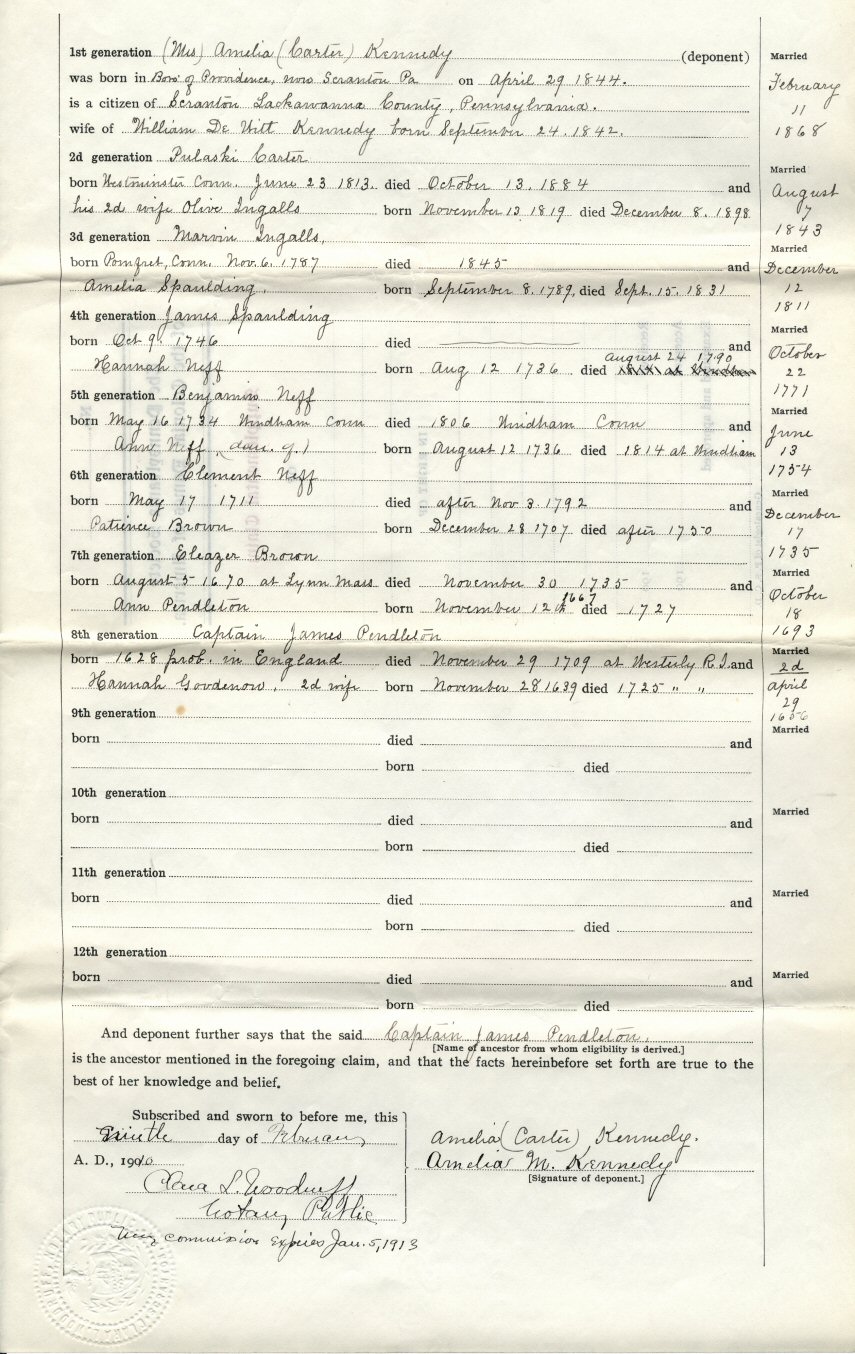 1st generation (Mrs) Amelia (Carter) Kennedy (deponent) Married
was born in Boro' of Providence, now Scranton Pa on April 29 1844. February
is a citizen of Scranton Lackawanna County, Pennsylvania. 11
wife of William De Witt Kennedy born September 24. 1842. 1868
2d generation Pulaski Carter Married
born Westminster Conn. June 23 1813. died October 13. 1884 and August
his 2d wife Olive Ingalls born November 13 1819 died December 8. 1898 7
1843
3d generation Marvin Ingalls, Married
born Pomfret, Conn. Nov. 6. 1787 died 1845 and December
Amelia Spaulding. born September 8. 1789. died Sept. 15. 1831 12
1811
4th generation James Spaulding Married
born Oct 9. 1746 died and October
August 24 1790
Hannah Neff born Aug 12 1736 died at Windham 22
1771
5th generation Benjamin Neff Married
born May 16 1734 Windham Conn died 1806 Windham Conn and June
Ann Neff (dau. of) born August 12 1736 died 1814 at Windham 13
1754
6th generation Clement Neff Married
born May 17 1711 died after Nov 3. 1792 and December
Patience Brown born December 28 1707 died after 1750 17
1735
7th generation Eleazer Brown Married
born August 5 1670 at Lynn Mass died November 30 1735 and October
1667
Ann Pendleton born November 12th died 1727 18
1693
8th generation Captain James Pendleton Married
born 1628 prob. in England died November 29 1709 at Westerly R.I. and 2d
Hannah Goodenow. 2d wife born November 28 1639 died 1725 " " April
29
1656
9th generation Married
born died and
born died
10th generation
born died and Married
born died
11th generation
born died and Married
born died
12th generation
born died and Married
born died
And deponent further says that the said Captain James Pendleton.
[Name of ancestor from whom eligibility is derived.]
is the ancestor mentioned in the foregoing claim, and that the facts hereinbefore set forth are true to the
best of her knowledge and belief.
Subscribed and sworn to before me, this
Ninth day of February
Amelia (Carter) Kennedy.
A. D., 1910
Amelia M. Kennedy
[Signature of deponent.]
Clara L. Woodruff
Notary Public
My commission expires Jan. 5, 1913